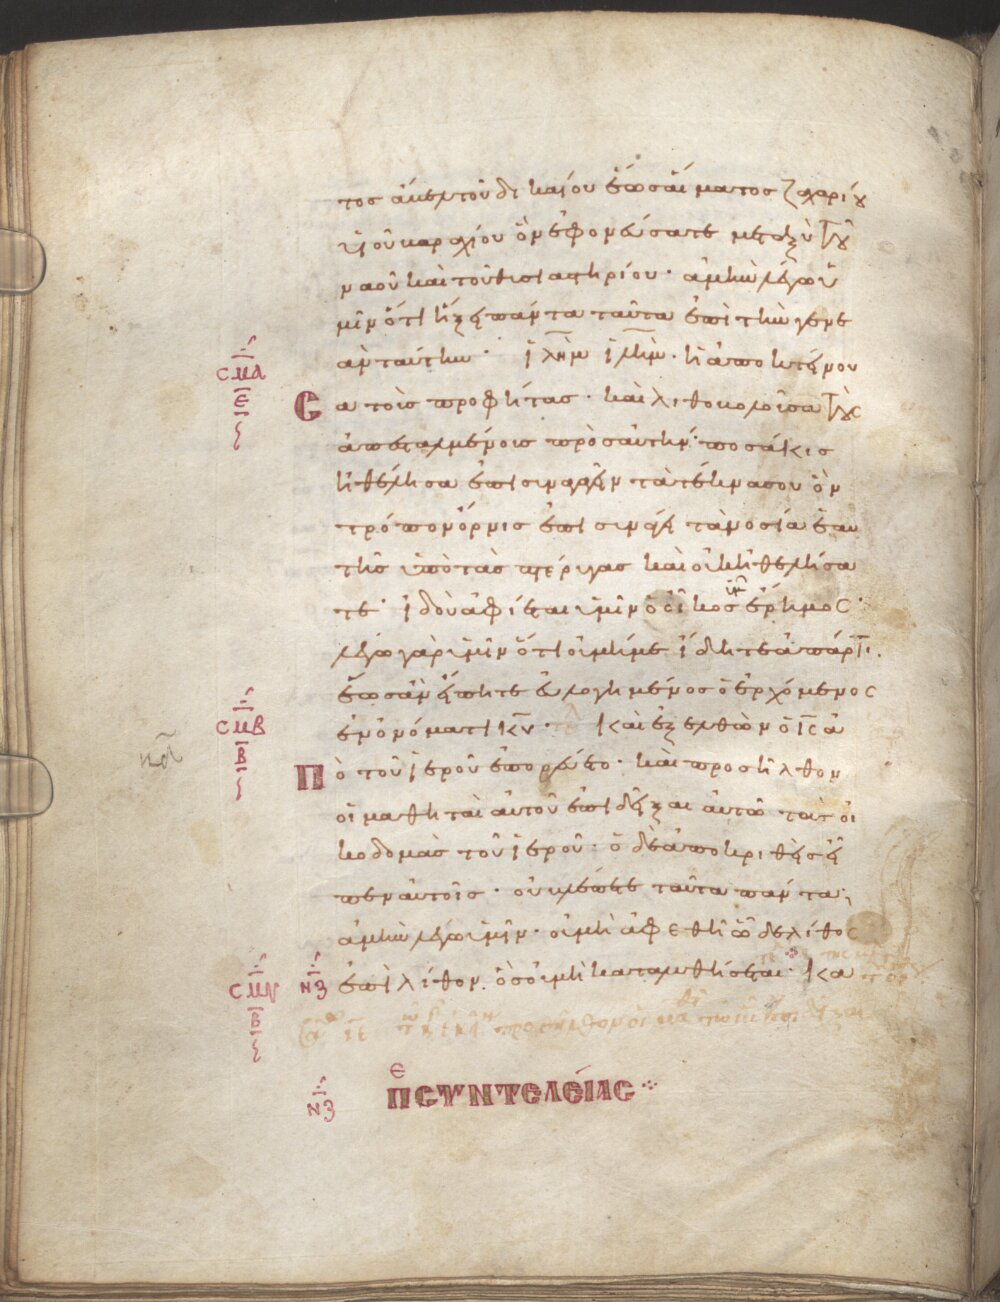 τος ἄβελ τοῦ δικαίου ἕως αἵματος ζαχαρίου
υἱοῦ βαραχίου ὃν ἐφονεύσατε μεταξὺ τοῦ
ναοῦ καὶ τοῦ θυσιαστηρίου · ἀμὴν λέγω ὑ
μῖν ὅτι ἥξει πάντα ταῦτα ἐπὶ τὴν γενε
ὰν ταύτην · ἱλὴμ ἱλὴμ · ἡ ἀποκτένου
σα τοὺς προφήτας · καὶ λιθοβολοῦσα τοὺς
ἀπεσταλμένους πρὸς αὐτήν · ποσάκις
ἠθέλησα ἐπισυναγαγεῖν τὰ τέκνα σου ὃν
τρόπον ὄρνις ἐπισυνάγει τὰ νοσία ἑαυ
τῆς ὑπὸ τὰς πτέρυγας καὶ οὐκ ἠθελήσα
τε · ἰδοὺ ἀφίεται ὑμῖν ὁ οἶκος ὑμῶν ἔρημος ·
λέγω γὰρ ὑμῖν ὅτι οὐ μή με ἴδητε ἀπάρτι ·
ἕως ἂν εἴπητε εὐλογημένος ὁ ἐρχόμενος
ἐν ὀνόματι κυ · τελ Καὶ ἐξελθὼν ὁ ις ἀ
πὸ τοῦ ἱεροῦ ἐπορεύετο · καὶ προσῆλθον
οἱ μαθηταὶ αὐτοῦ ἐπιδεῖξαι αὐτῶ τὰς οἰ
κοδομὰς τοῦ ἱεροῦ · ὁ δὲ ἀποκριθεὶς εἶ
πεν αὐτοῖς · οὐ βλέπετε ταῦτα πάντα ;
ἀμὴν λέγω ὑμῖν · οὐ μὴ ἀφεθῆ ὧδε λίθος
ἐπὶ λίθον ὃς οὐ μὴ καταλυθήσεται · Κα
σμα
ε
σμβ
β
σμγ
β
νζ
νζ
πε συντελείας